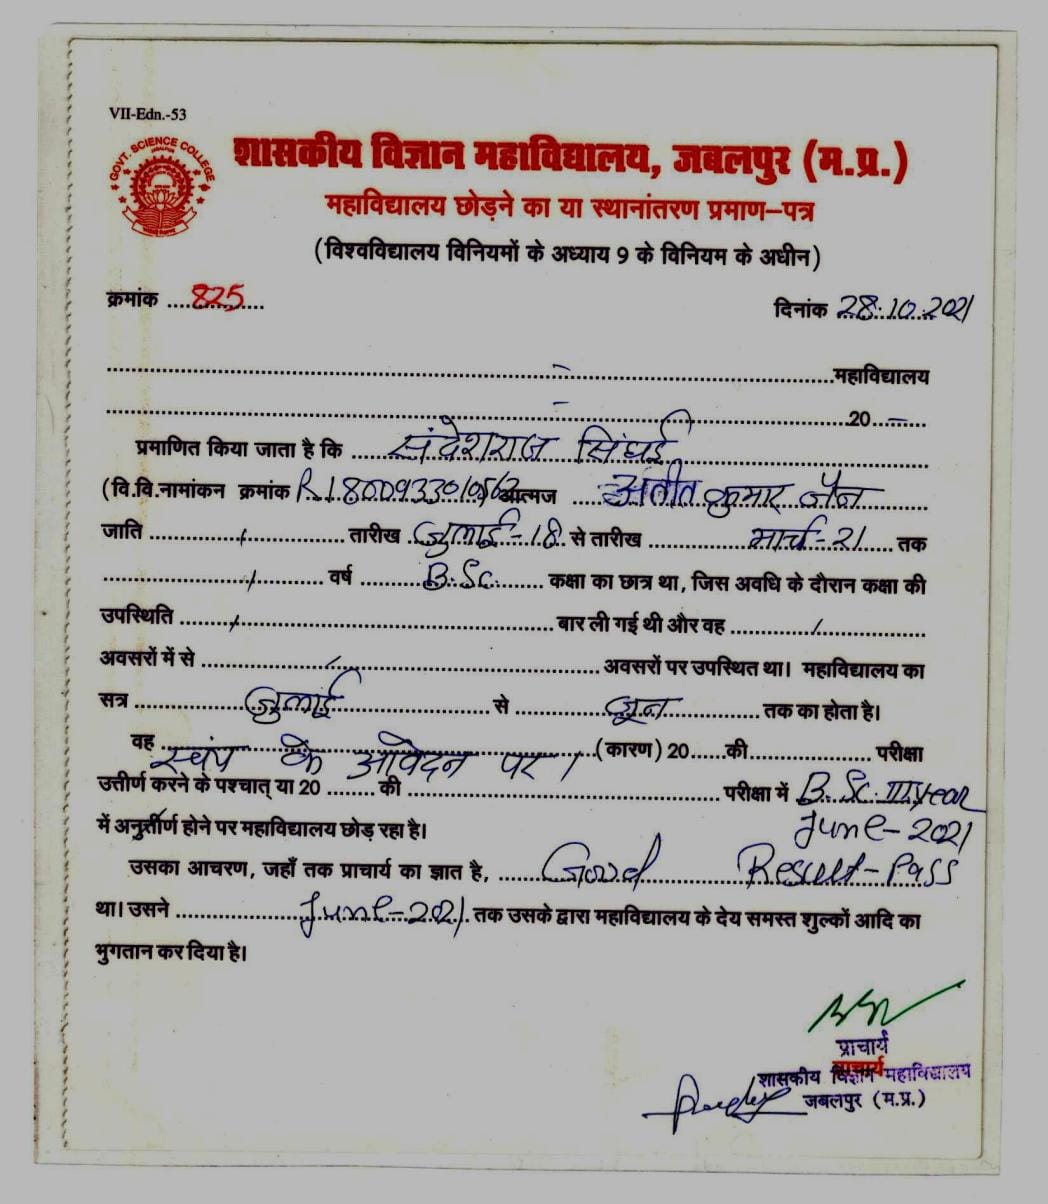 VII-Edn.-53
GOVT. SCIENCE COLLEGE
शासकीय विज्ञान महाविद्यालय, जबलपुर (म.प्र.)
महाविद्यालय छोड़ने का या स्थानांतरण प्रमाण-पत्र
(विश्वविद्यालय विनियमों के अध्याय 9 के विनियम के अधीन)
क्रमांक ....825.... दिनांक 28.10.2021
..........-..........महाविद्यालय
..........-..........20..-..
प्रमाणित किया जाता है कि ....संदेशराज सिंघई....
(वि.वि.नामांकन क्रमांक आत्मज ....अतीत कुमार जैन....
जाति ....../...... तारीख .जुलाई-18. से तारीख ......मार्च-21.... तक
......../.... वर्ष ......B.Sc...... कक्षा का छात्र था, जिस अवधि के दौरान कक्षा की
उपस्थिति ....../...... बार ली गई थी और वह ....../......
अवसरों में से ....../...... अवसरों पर उपस्थित था। महाविद्यालय का
सत्र ......जुलाई...... से ......जून...... तक का होता है।
वह स्वयं के आवेदन पर। (कारण) 20......की.......... परीक्षा
उत्तीर्ण करने के पश्चात् या 20 ........की .......... परीक्षा में B.Sc. III year
में अनुत्तीर्ण होने पर महाविद्यालय छोड़ रहा है। June-2021
उसका आचरण, जहाँ तक प्राचार्य का ज्ञात है, ....Good.... Result-Pass
था। उसने ......June-2021. तक उसके द्वारा महाविद्यालय के देय समस्त शुल्कों आदि का
भुगतान कर दिया है।
प्राचार्य
प्राचार्य
शासकीय विज्ञान महाविद्यालय
जबलपुर (म.प्र.)